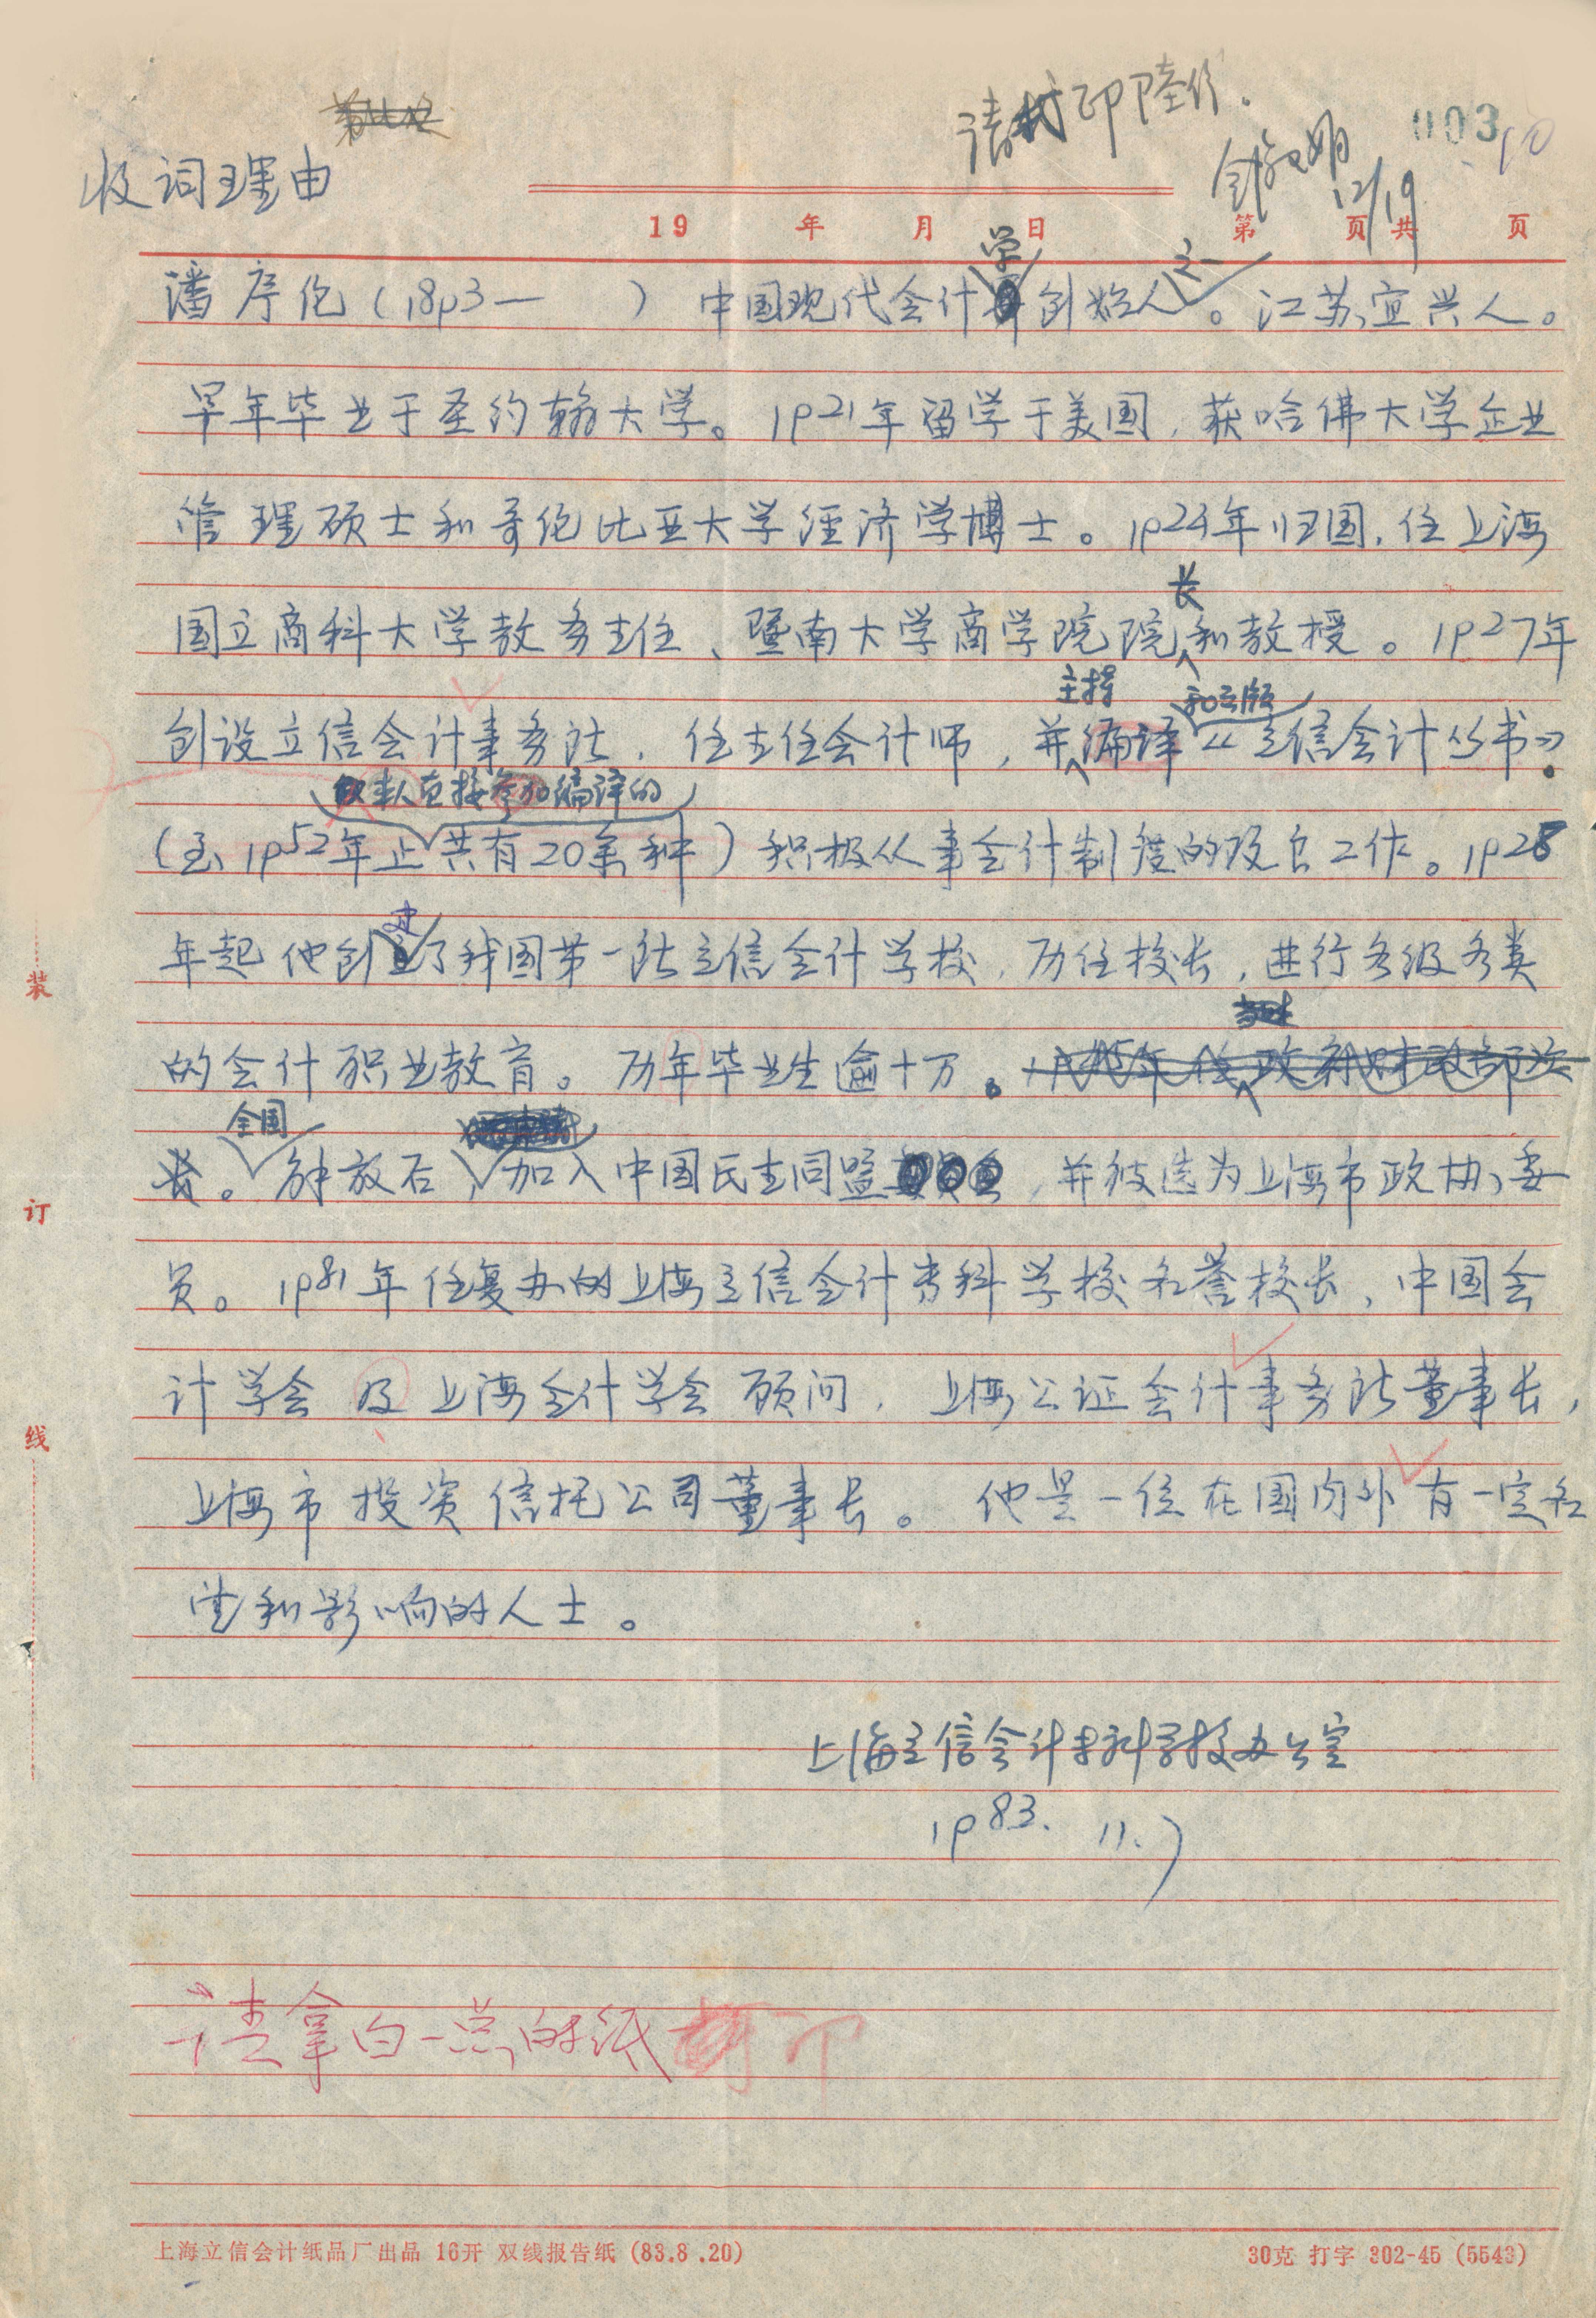 请打印陆份.
003
10
收词理由
12/19
19 年 月 日 第 页共 页
潘序伦(1893— )中国现代会计学创始人之一。江苏宜兴人。
早年毕业于圣约翰大学。1921年留学于美国,获哈佛大学企业
管理硕士和哥伦比亚大学经济学博士。1924年归国,任上海
国立商科大学教务主任、暨南大学商学院院长和教授。1927年
创设立信会计事务所,任主任会计师,并主持编译和出版《立信会计丛书》。
(至1952年止本人直接参加编译的共有20余种)积极从事会计制度的改良工作。1928
年起他创办了我国第一所立信会计学校,历任校长,进行各级各类
的会计职业教育。历年毕业生逾十万。
全国解放后,加入中国民主同盟,并被选为上海市政协委
员。1981年任复办的上海立信会计专科学校名誉校长,中国会
计学会及上海会计学会顾问,上海公证会计事务所董事长,
上海市投资信托公司董事长。他是一位在国内外有一定名
望和影响的人士。
上海立信会计专科学校办公室
1983. 11.7
请拿白一点的纸打印
装
订
线
上海立信会计纸品厂出品 16开 双线报告纸 (83.8.20)
30克 打字 302-45 (5543)